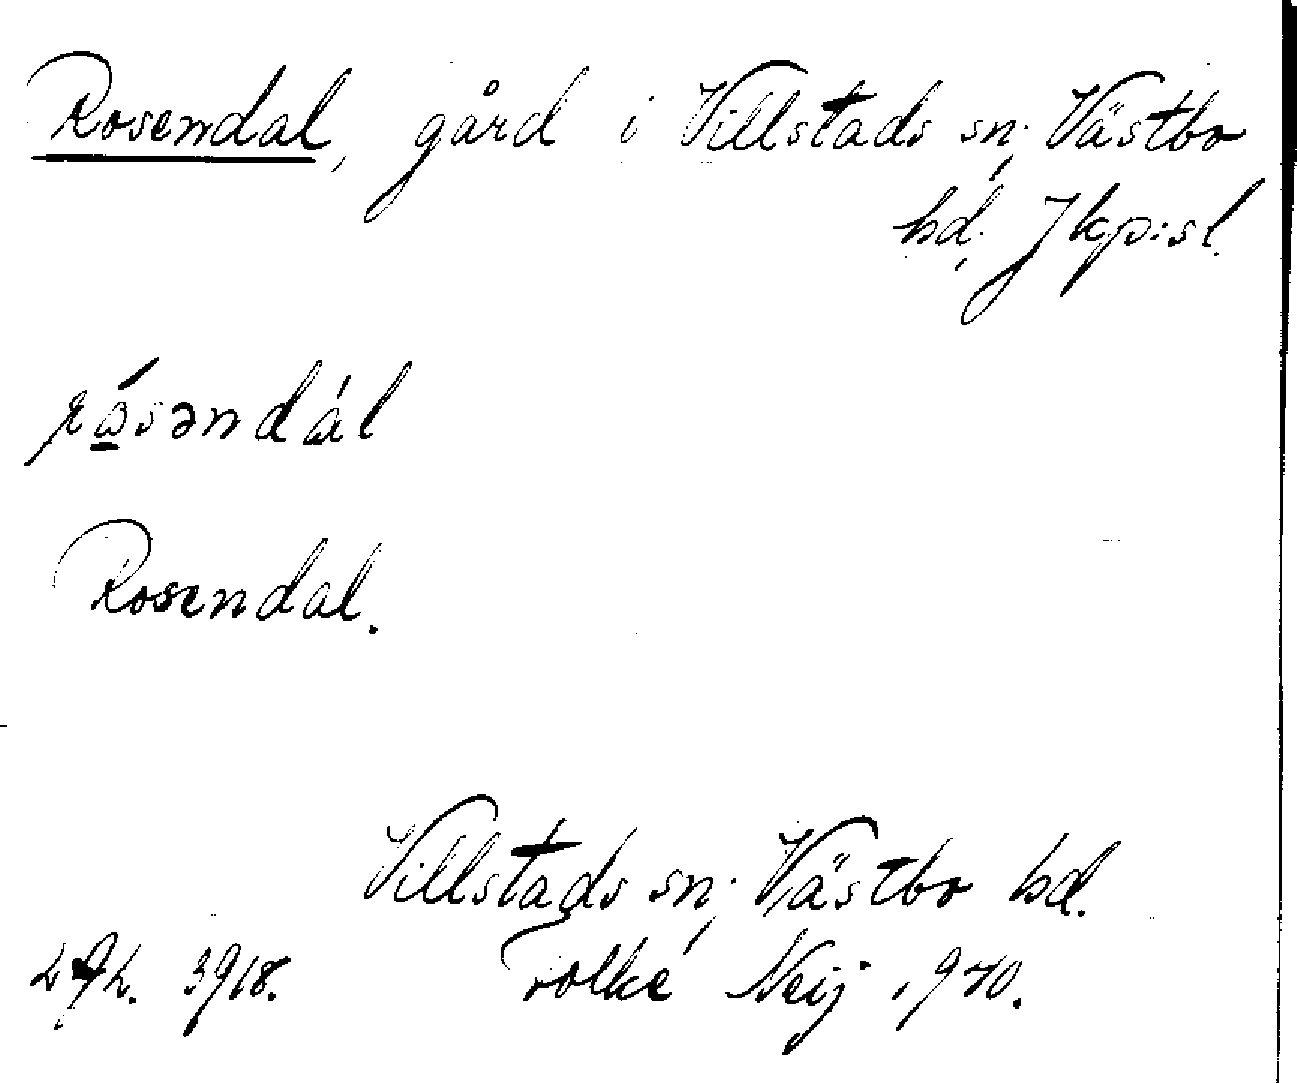 Rosendal, gård i Villstads sn, Västbo
hd, Jkp:s l.
rósəndál
Rosendal.
Villstads sn, Västbo hd.
3918. Folke Neij 1940.